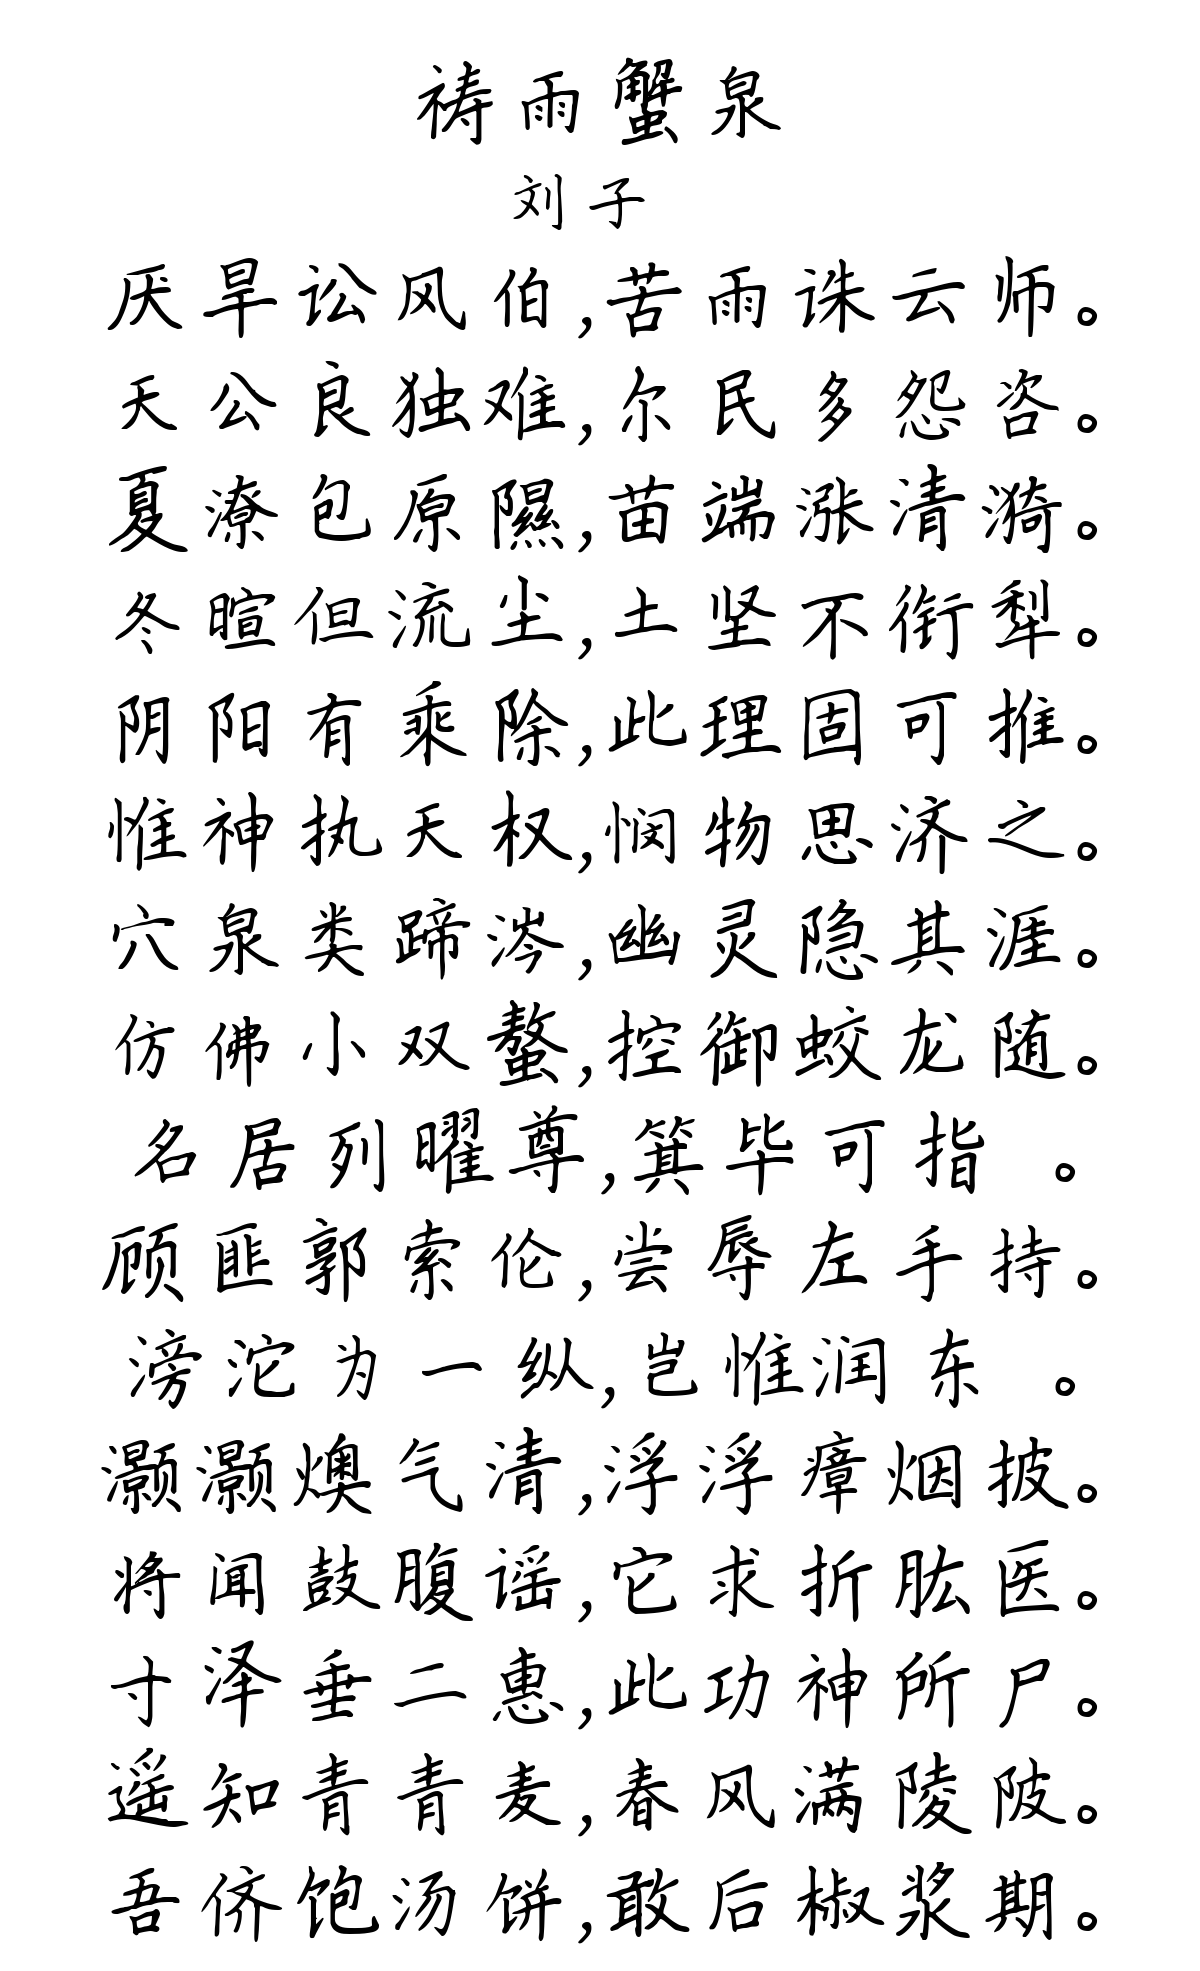 祷雨蟹泉
刘子
厌旱讼风伯,苦雨诛云师。
天公良独难,尔民多怨咨。
夏潦包原隰,苗端涨清漪。
冬暄但流尘,土坚不衔犁。
阴阳有乘除,此理固可推。
惟神执天权,悯物思济之。
穴泉类蹄涔,幽灵隐其涯。
仿佛小双螯,控御蛟龙随。
名居列曜尊,箕毕可指 。
顾匪郭索伦,尝辱左手持。
滂沱为一纵,岂惟润东 。
灏灏燠气清,浮浮瘴烟披。
将闻鼓腹谣,它求折肱医。
寸泽垂二惠,此功神所尸。
遥知青青麦,春风满陵陂。
吾侪饱汤饼,敢后椒浆期。